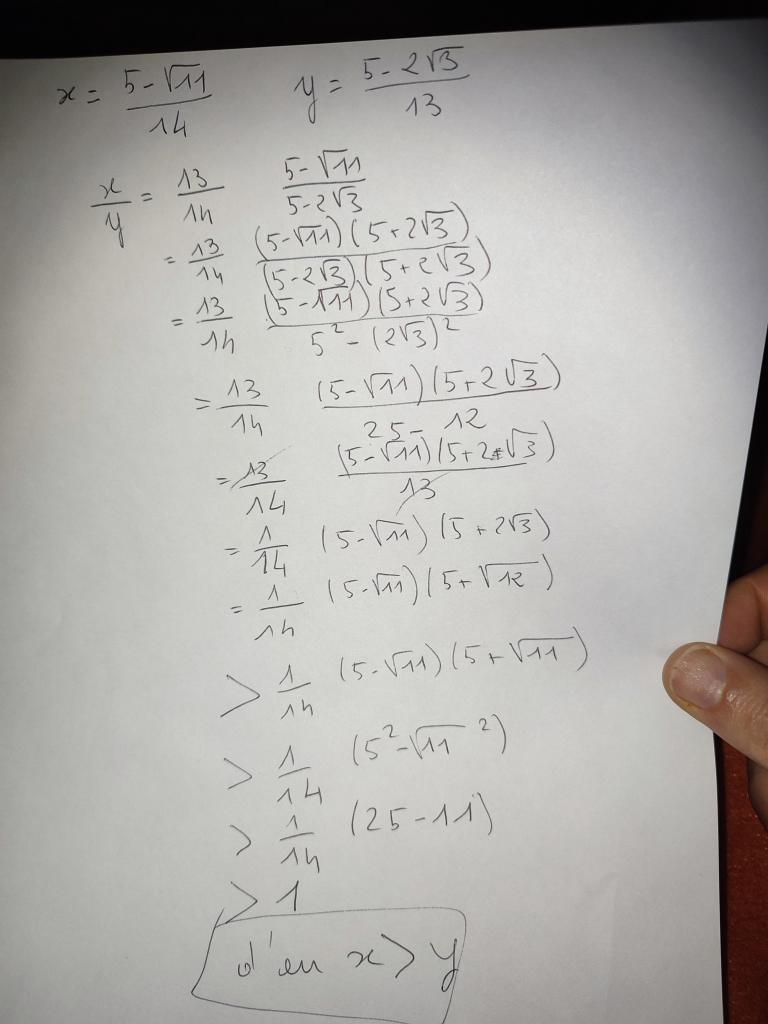 x = (5-√11)/14 y = (5-2√3)/13
x/y = 13/14 (5-√11)/(5-2√3)
= 13/14 (5-√11)(5+2√3)/(5-2√3)(5+2√3)
= 13/14 (5-√11)(5+2√3)/5²-(2√3)²
= 13/14 (5-√11)(5+2√3)/25-12
= 13/14 (5-√11)(5+2√3)/13
= 1/14 (5-√11)(5+2√3)
= 1/14 (5-√11)(5+√12)
> 1/14 (5-√11)(5+√11)
> 1/14 (5²-√11²)
> 1/14 (25-11)
> 1
d'où x > y